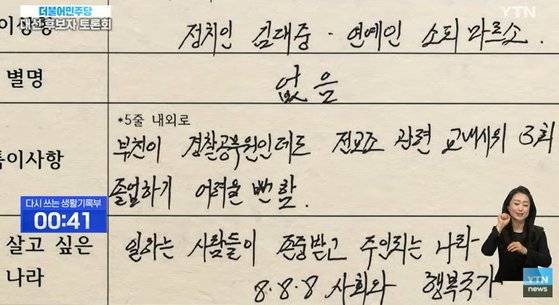 더불어민주당
대선 후보자 토론회
YTN
정치인 김대중 · 연예인 소피 마르소.
별명
없음
*5줄 내외로
특이사항
부친이 경찰공무원인데도 전교조 관련 교내시위 (3회
졸업하기 어려울 뻔함.
다시 쓰는 생활기록부
00:41
살고 싶은
나라
일하는 사람들이 존중받고 주인되는 나라-
8.8.8 사회와 행복국가
YTN
news